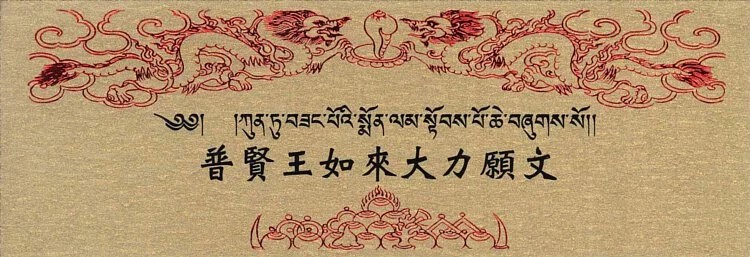 ༄༅། །ཀུན་ཏུ་བཟང་པོའི་སྨོན་ལམ་སྟོབས་པོ་ཆེ་བཞུགས་སོ།།
普賢王如來大力願文